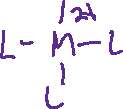 2+
L-M-L
L